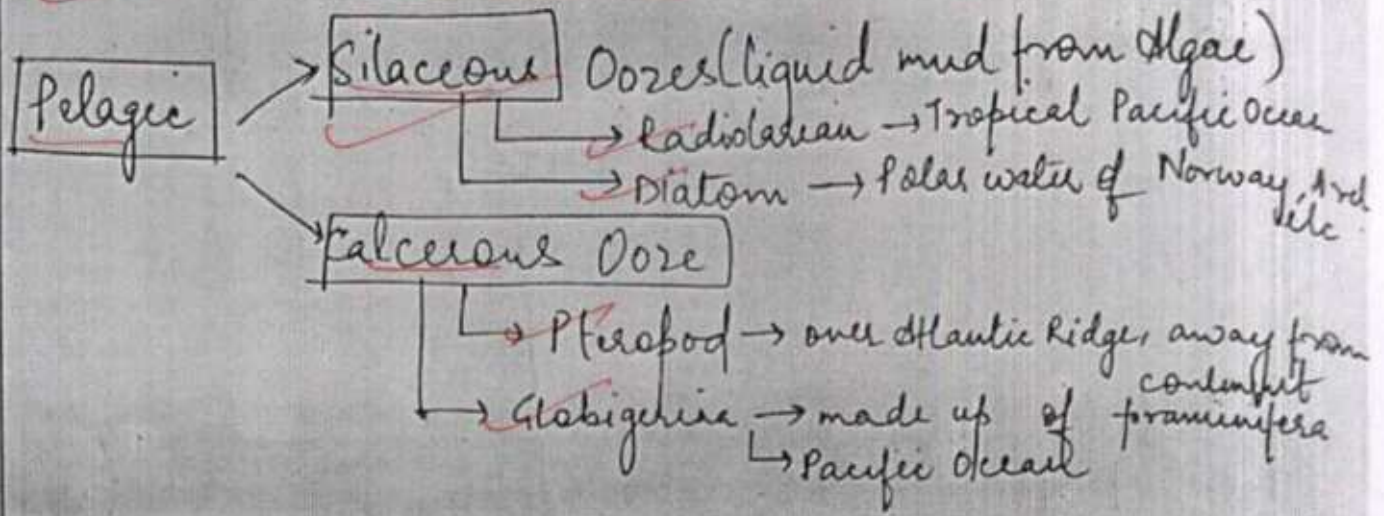 Pelagic
Silaceous Oozes (liquid mud from Algae)
→ Radiolarian → Tropical Pacific Ocean
→ Diatom → Polar water of Norway,
etc.
Calcerous Ooze
→ Pteropod → over Atlantic Ridge, away from
→ Globigerina → made up of
→ Pacific Ocean